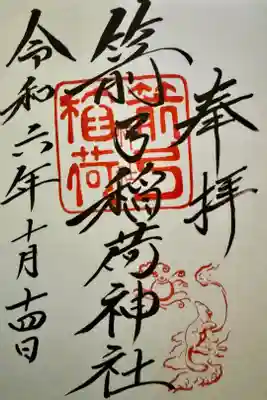 奉拝
箭弓稲荷神社
令和六年十月十四日
箭弓稲荷